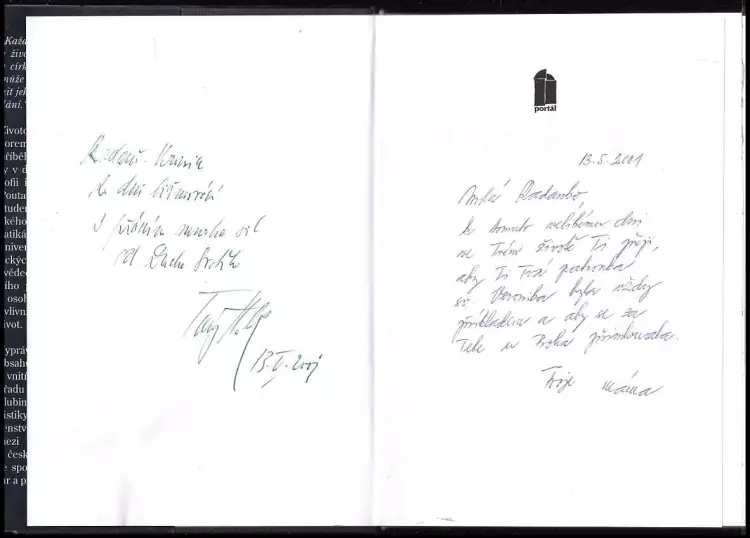 Každ
živo
círk
může
it jel
lání."
Životo
orem
říběh
y v d
ofii i
Pouta
tuden
kého
atiká
niver
ckých
vědec
ího
osob
vlivni
ivot.
vypráv
obsahu
vnitř
řadu
lubin
istiky
enstv
mezi
česk
e spo
ar a p
Ke dni biřmování
s přáním mnoha sil
od Ducha Svatého
13.V.2001
portál
13.5.2001
Milá Radanko,
k tomuto velikému dni
ve Tvém životě Ti přeji,
aby Ti Tvá patronka
sv. Veronika byla vždy
příkladem a aby se za
Tebe u Boha přimlouvala.
Tvoje máma